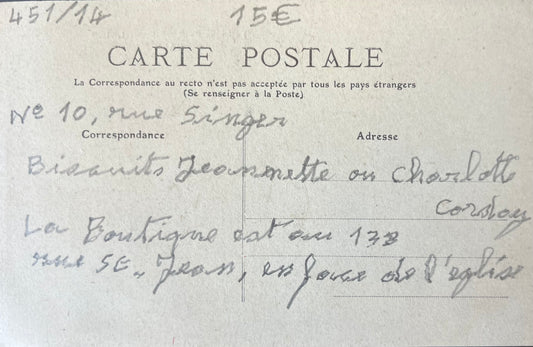 451/14 15€
CARTE POSTALE
La Correspondance au recto n'est pas acceptée par tous les pays étrangers
(Se renseigner à la Poste)
No 10, rue Singer
Correspondance Adresse
Biscuits Jeannette ou Charlotte
Corday
La Boutique est au 138
rue St-Jean, en face de l'eglise